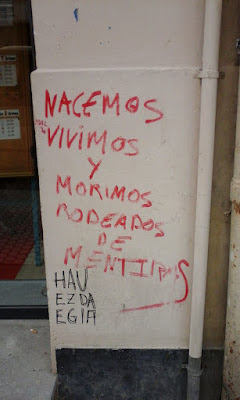 NACEMOS
VIVIMOS
Y
MORIMOS
RODEADOS
DE
MENTIRAS
HAU
EZ DA
EGIA